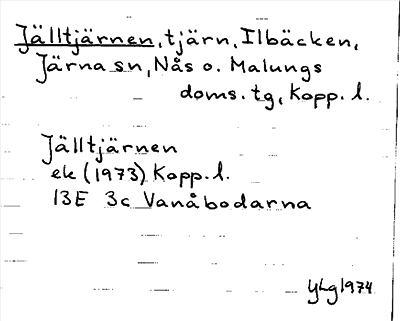 Jälltjärnen, tjärn, Ilbäcken,
Järna sn, Nås o. Malungs
doms. tg, Kopp. l.
Jälltjärnen
ek (1973) Kopp. l.
13E 3c Vanåbodarna
YLg 1974